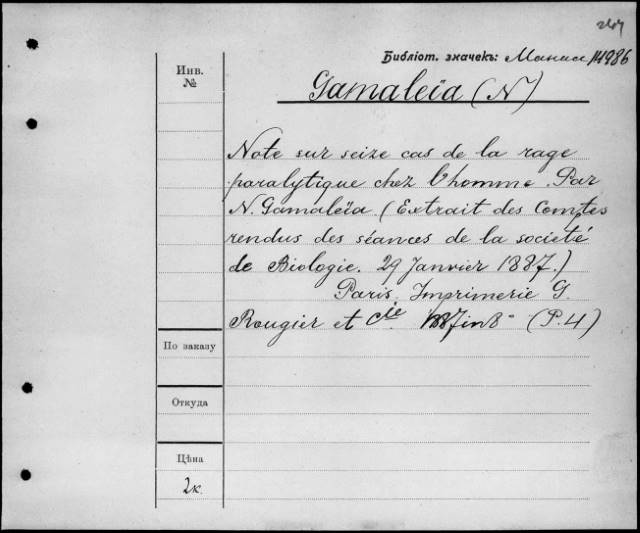 Библіот. значекъ: 114986
Инв.
№
Gamaleïa (N)
Note sur seize cas de la rage
paralytique chez l'homme. Par
N. Gamaleïa. (Extrait des Comptes
rendus des séances de la societé
de Biologie. 29 Janvier 1887.)
Paris, Imprimerie G.
Rougier et Cie 1887 in 8° (P. 4)
По заказу
Откуда
Цѣна
2к.